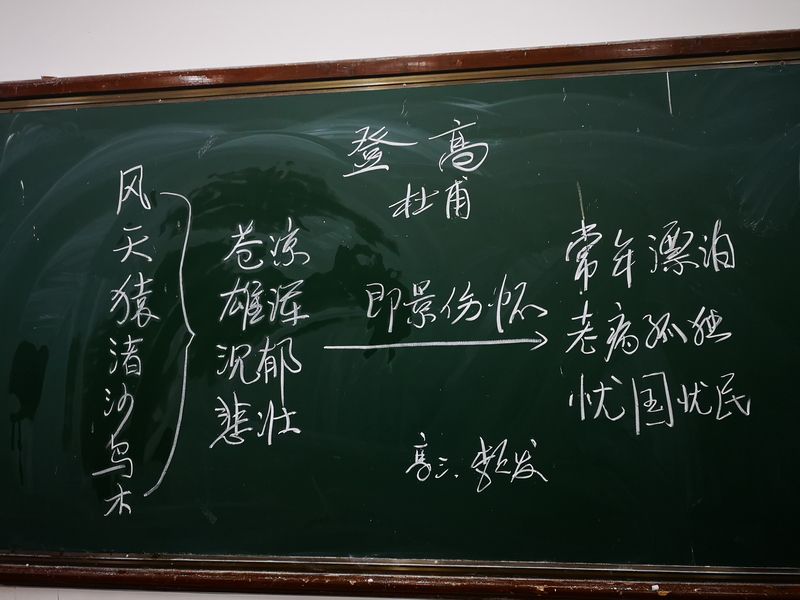 登高
杜甫
风
天
猿
渚
沙
鸟
木
苍凉
雄浑
沉郁
悲壮
即景伤怀
常年漂泊
老病孤独
忧国忧民
高三.